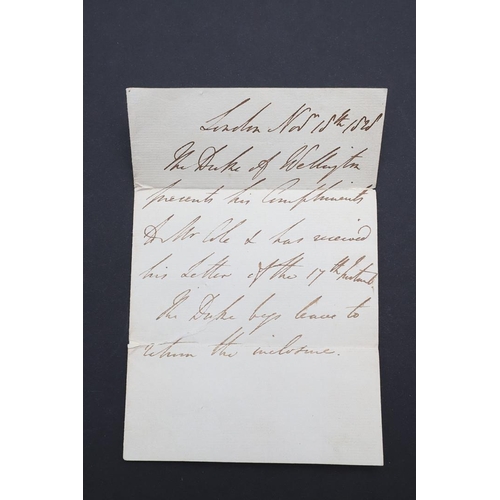 London Novr 18th 1828
The Duke of Wellington
presents his Compliments
to Mr Cole & has received
his Letter of the 17th Instant
The Duke begs leave to
return the inclosure.